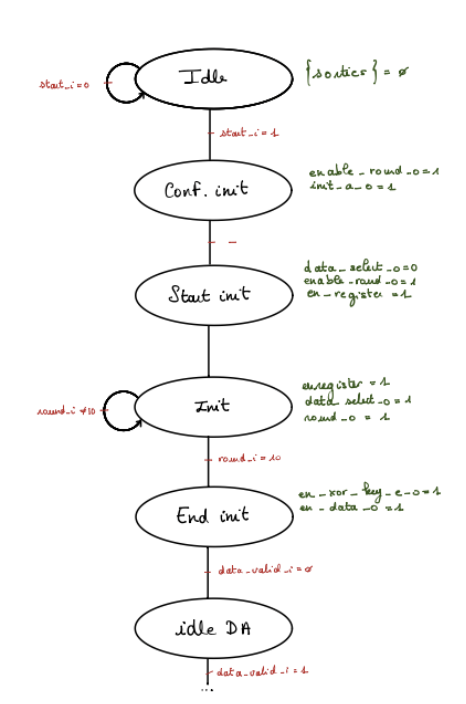 Idle
{sorties} = ø
start_i=0
start_i=1
Conf. init
enable_round_o=1
init_a_o=1
Start init
data_select_o=0
enable_round_o=1
en_register =1
Init
enregister = 1
data select_o=1
round_o = 1
round_i ≠10
round_i = 10
End init
en_xor_key_e_o=1
en_data_o=1
data_valid_i=ø
idle DA
data_valid_i=1
...